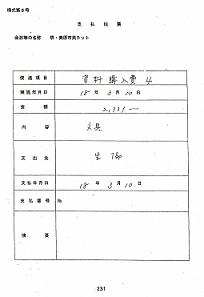 様式第8号
支払伝票
会派等の名称 堺・美原市民ネット
使途項目 資料購入費 4
発議年月日 18年3月10日
金額 2,331—
内容 文具
支出先
支払年月日 18年3月10日
支払番号 №
摘要
231